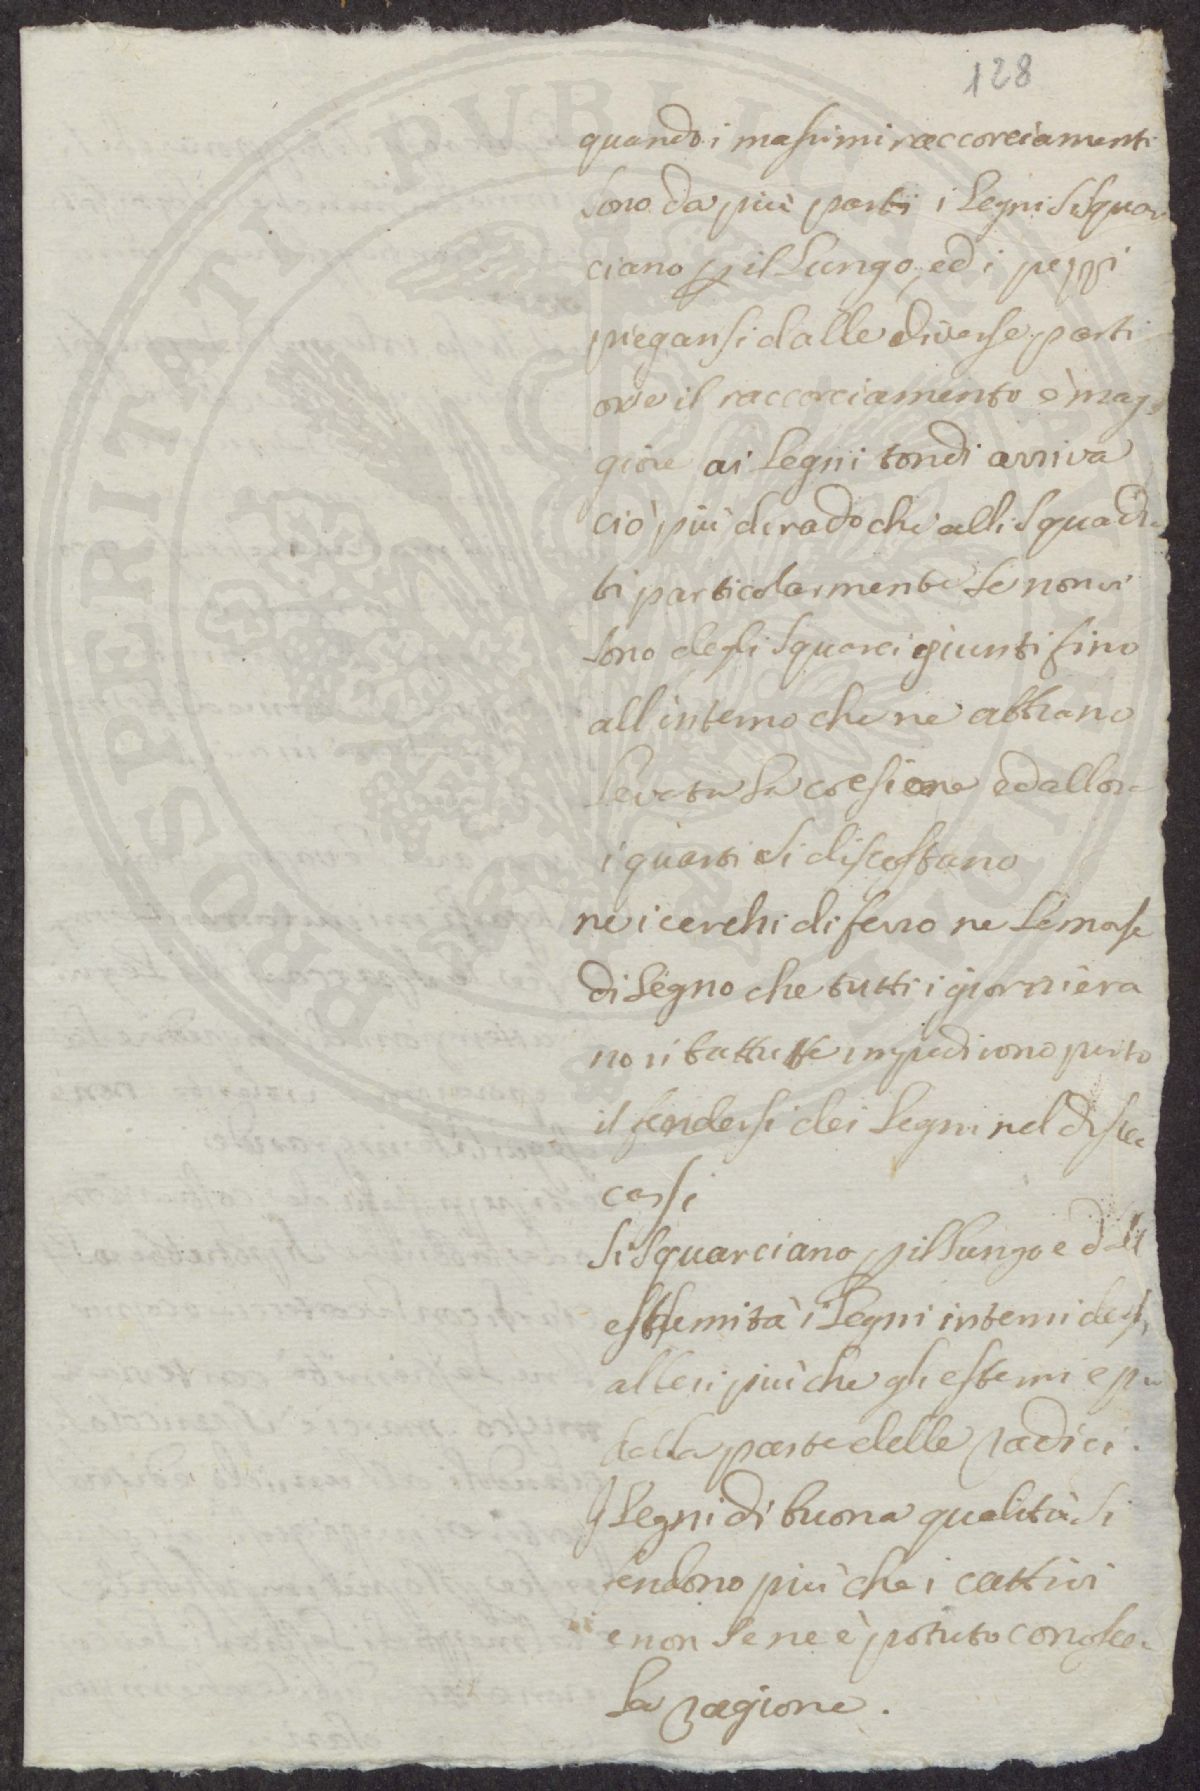 128
quando i massimi raccorciamenti
sono da più parti i legni si squar
ciano p il lungo, ed i pezzi
piegansi dalle diverse parti
ove il raccorciamento è mag
giore ai legni tondi arriva
ciò più di rado che alli squadra
ti particolarmente se non vi
sono degli squarci giunti fino
all'interno che ne abbiano
levata la coesione ed allora
i quarti si discostano
ne i cerchi di ferro ne le morse
di legno che tutti i giorni era
no ribattute impedirono punto
il fendersi dei legni nel disec
carsi
si squarciano p il lungo e dall
estremità i legni interni degli
alberi più che gli esterni e più
dalla parte delle radici.
I legni di buona qualità si
fendono più che i cattivi
e non se ne è potuto conoscer
la ragione.
PROSPERITATI PUBLICAE